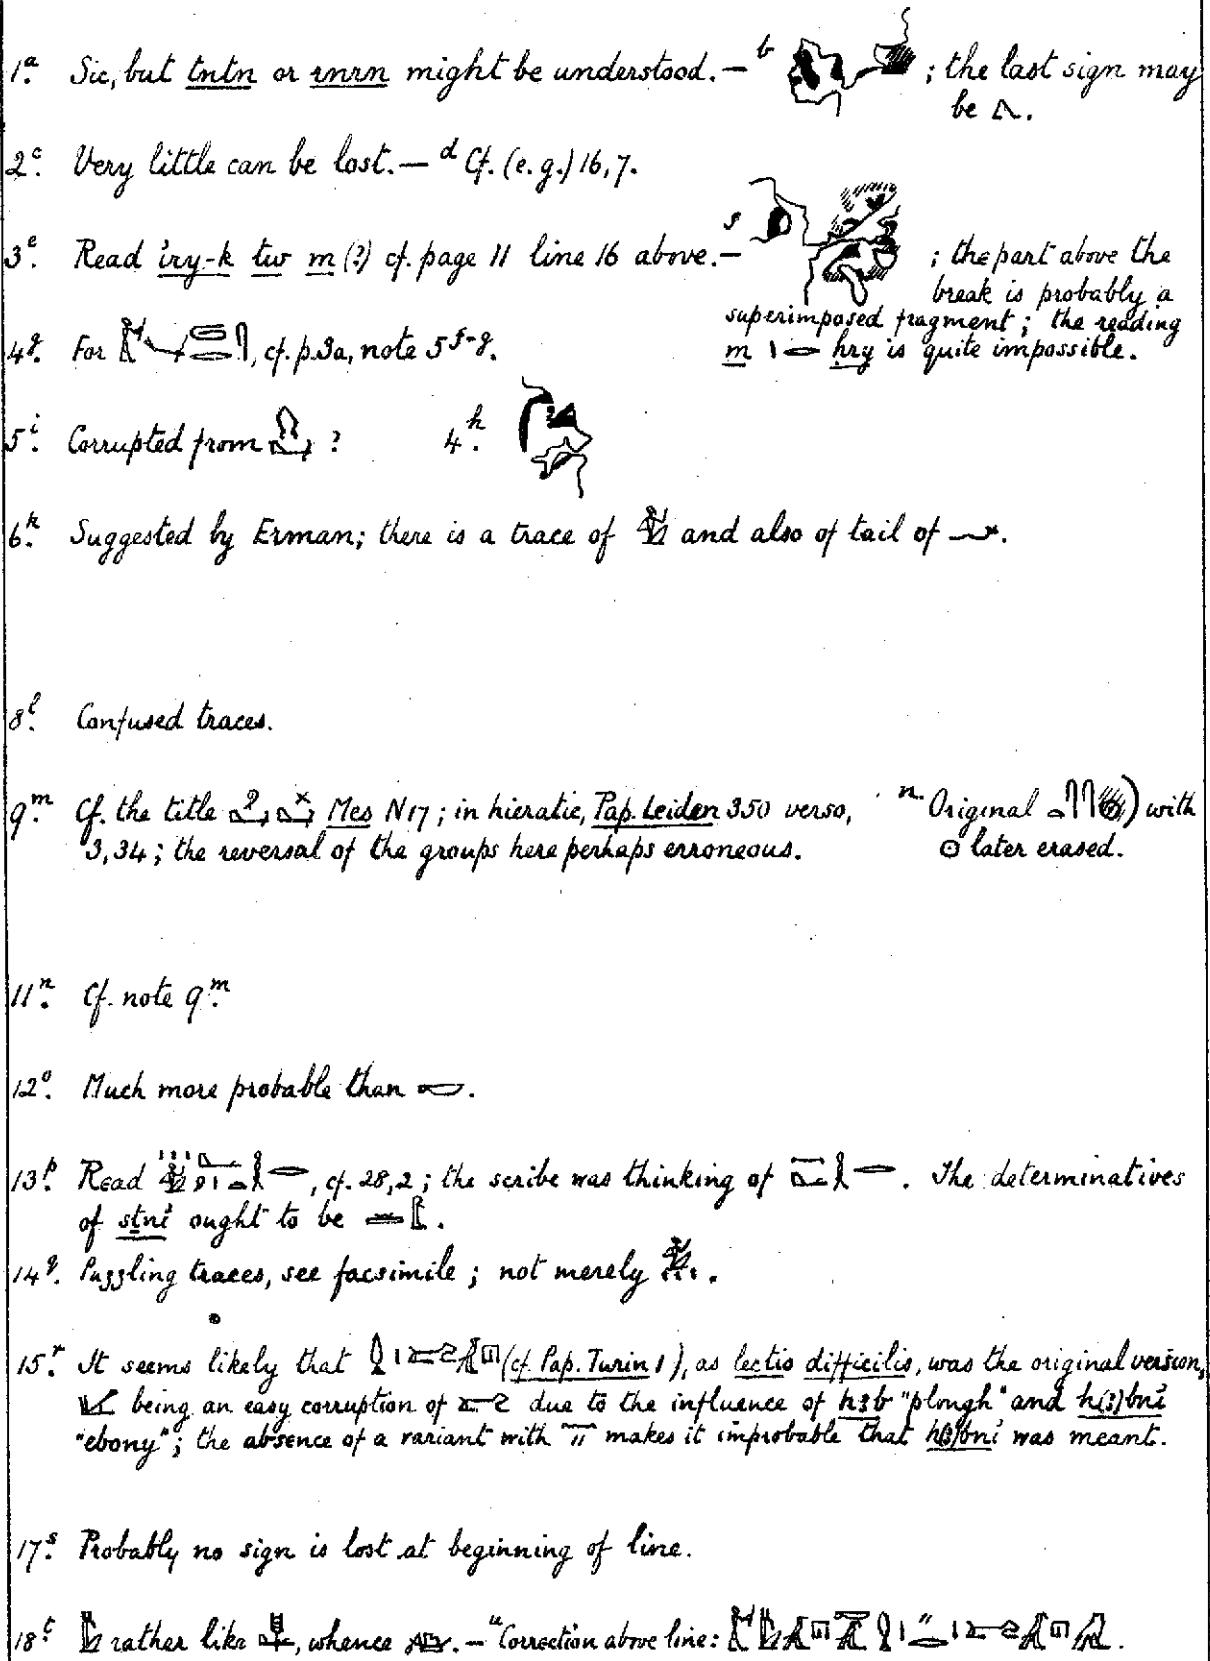 1.a Sic, but tntn or rnrn might be understood. — b ; the last sign may
be 𓈎.
2.c Very little can be lost. — d Cf. (e.g.) 16, 7.
3.e Read iry-k tw m (?) cf. page 11 line 16 above. — f ; the part above the
break is probably a
superimposed fragment; the reading
m 𓏤𓂋 hry is quite impossible.
4.g For , cf. p. 3a, note 5 f-g.
5.i Corrupted from ? 4.h
6.k Suggested by Erman; there is a trace of 𓀁 and also of tail of 𓆑.
8.l Confused traces.
9.m Cf. the title Mes N17; in hieratic, Pap. Leiden 350 verso,
3,34; the reversal of the groups here perhaps erroneous.
n. Original with
𓇳 later erased.
11.n Cf. note 9.m
12.o Much more probable than .
13.p Read , cf. 28,2; the scribe was thinking of . The determinatives
of stni ought to be .
14.q Puzzling traces, see facsimile; not merely .
15.r It seems likely that (cf. Pap. Turin 1), as lectio difficilis, was the original version,
being an easy corruption of due to the influence of hꜣb "plough" and h(ꜣ)bni
"ebony"; the absence of a variant with makes it improbable that h(ꜣ)bni was meant.
17.s Probably no sign is lost at beginning of line.
18.t rather like , whence . — u Correction above line: .